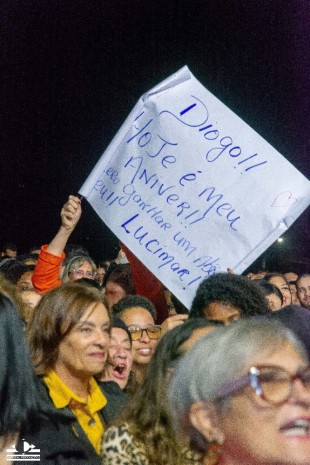 Diogo!!
Hoje é meu
aniver!!
ganhar um
eu!!
Lucimar